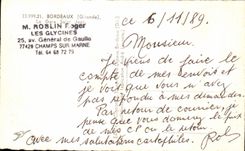 33.999.21. BORDEAUX (Gironde).
ce 6/11/89.
M. ROBLIN Roger
LES GLYCINES
25, av. Général de Gaulle
77429 CHAMPS SUR MARNE
Tél. 64 68 72 79
Monsieur,
Je viens de faire le
compte de mes envois et
je vois que vous n'avez
pas répondu à mes demandes.
Par retour de courrier, je
pense que vous donnerez le prix
de mes et ou le retour
avec mes
salutations cartophiles. Rob